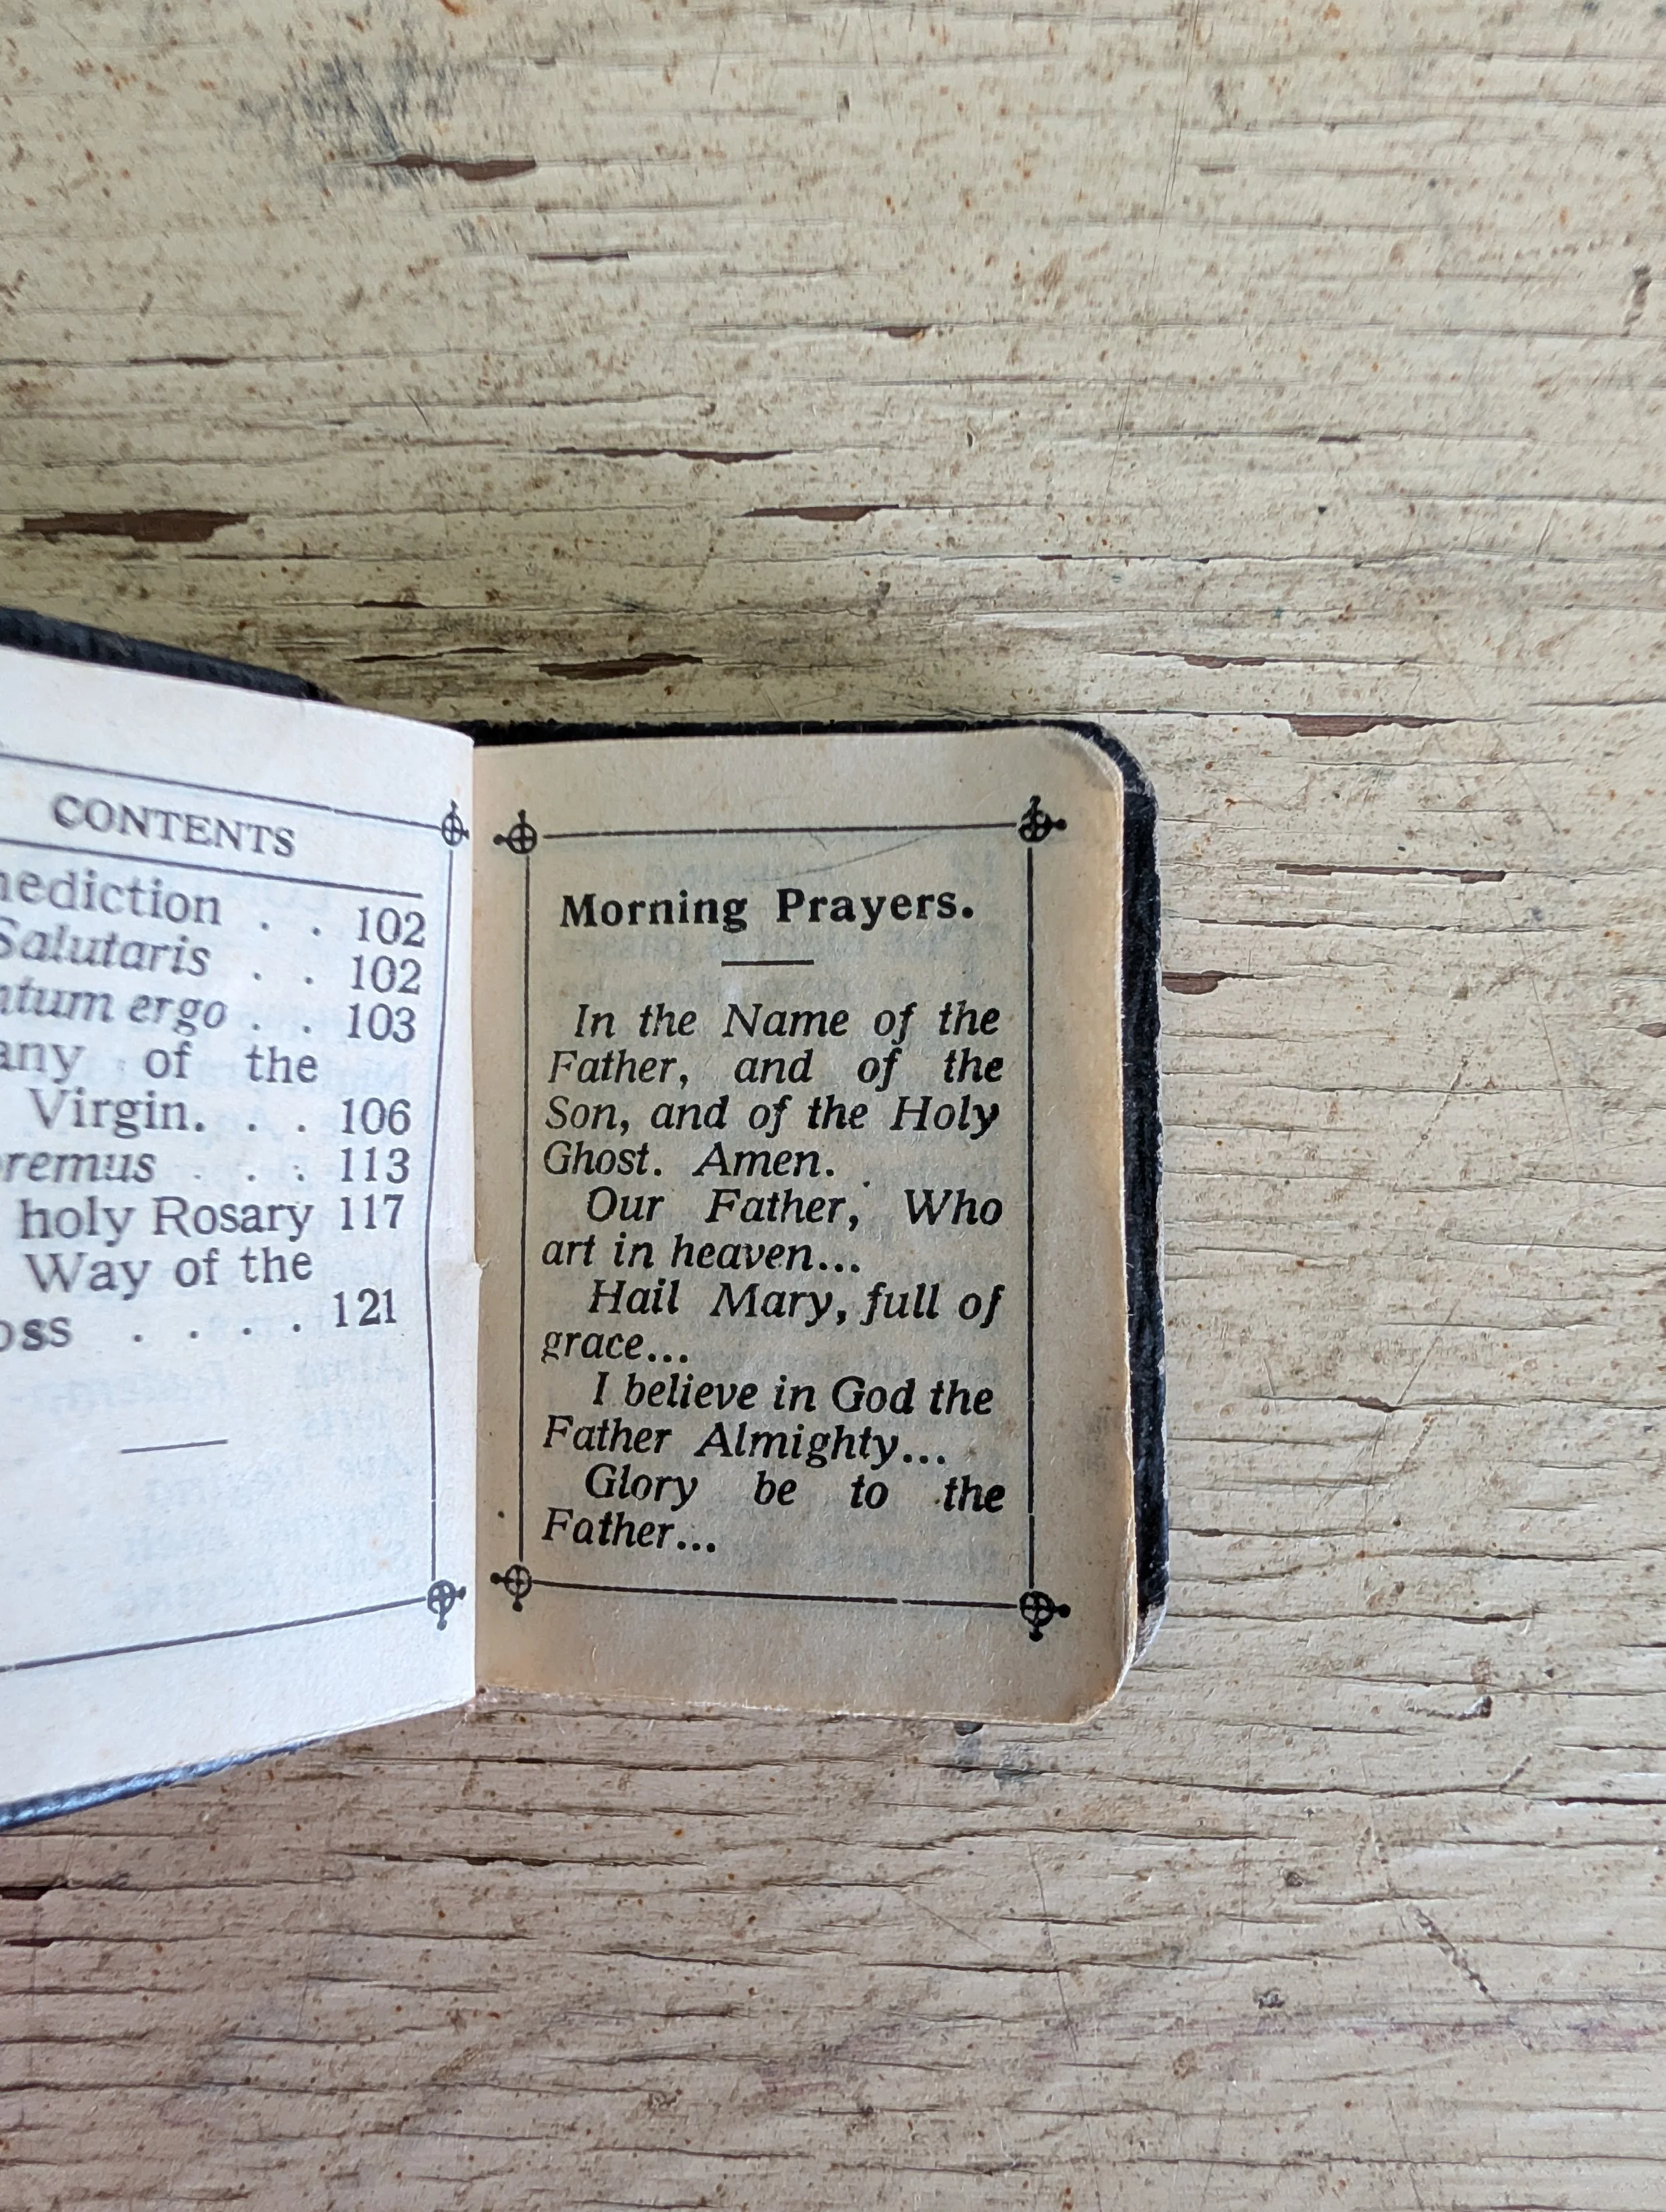 CONTENTS
nediction . . 102
Salutaris . . 102
ntum ergo . . 103
any of the
Virgin. . . 106
oremus . . . 113
holy Rosary 117
Way of the
oss . . . . 121
Morning Prayers.
In the Name of the
Father, and of the
Son, and of the Holy
Ghost. Amen.
Our Father, Who
art in heaven...
Hail Mary, full of
grace...
I believe in God the
Father Almighty...
Glory be to the
Father...